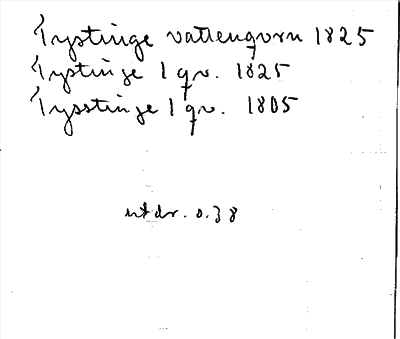 Tystinge vattenqvrn 1825
Tystinge 1 qv. 1825
Tysstinge 1 qv. 1805
utdr. s. 38